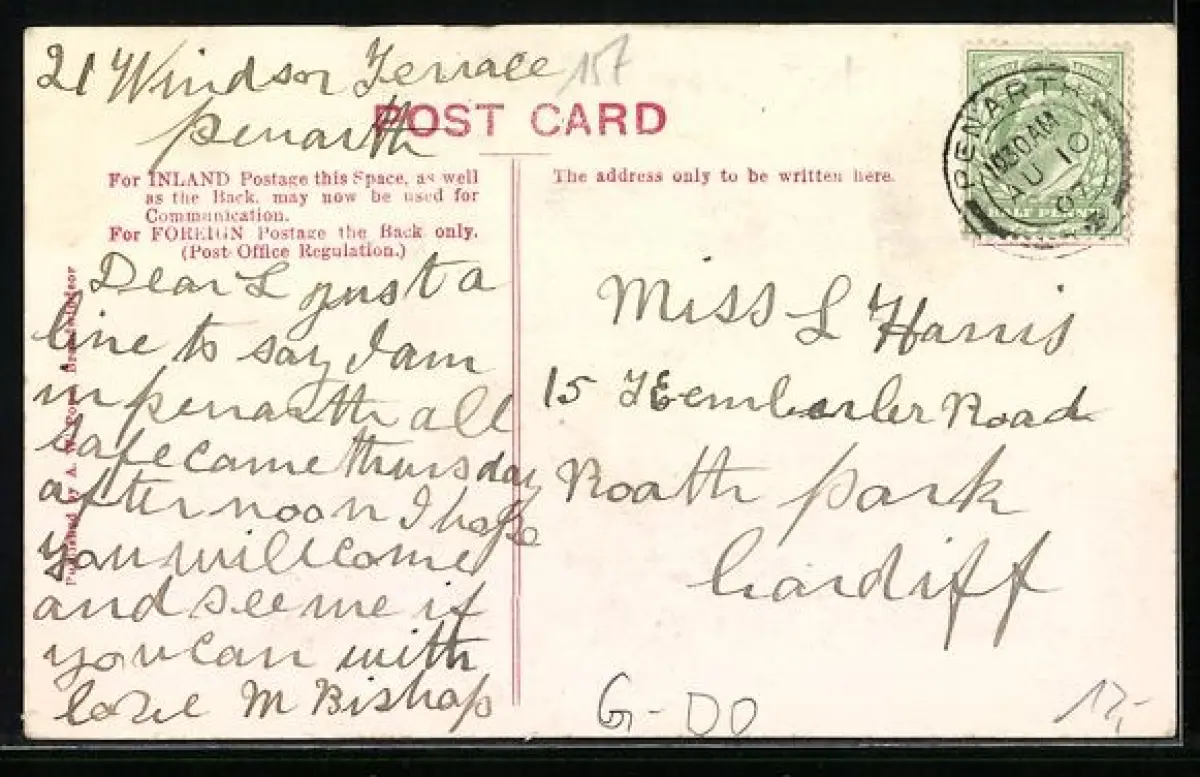 21 Windsor Terrace
penarth
157
POST CARD
For INLAND Postage this Space, as well
as the Back, may now be used for
Communication.
For FOREIGN Postage the Back only.
(Post Office Regulation.)
The address only to be written here.
PENARTH
10 30 AM
AU 10
07
HALF PENNY
Dear L just a
line to say I am
in penarth all
safe came thursday
afternoon I hope
you will come
and see me if
you can with
love M Bishop
Miss L Harris
15 Road
Roath park
Cardiff
Published by A. W.
G-DO
12,-